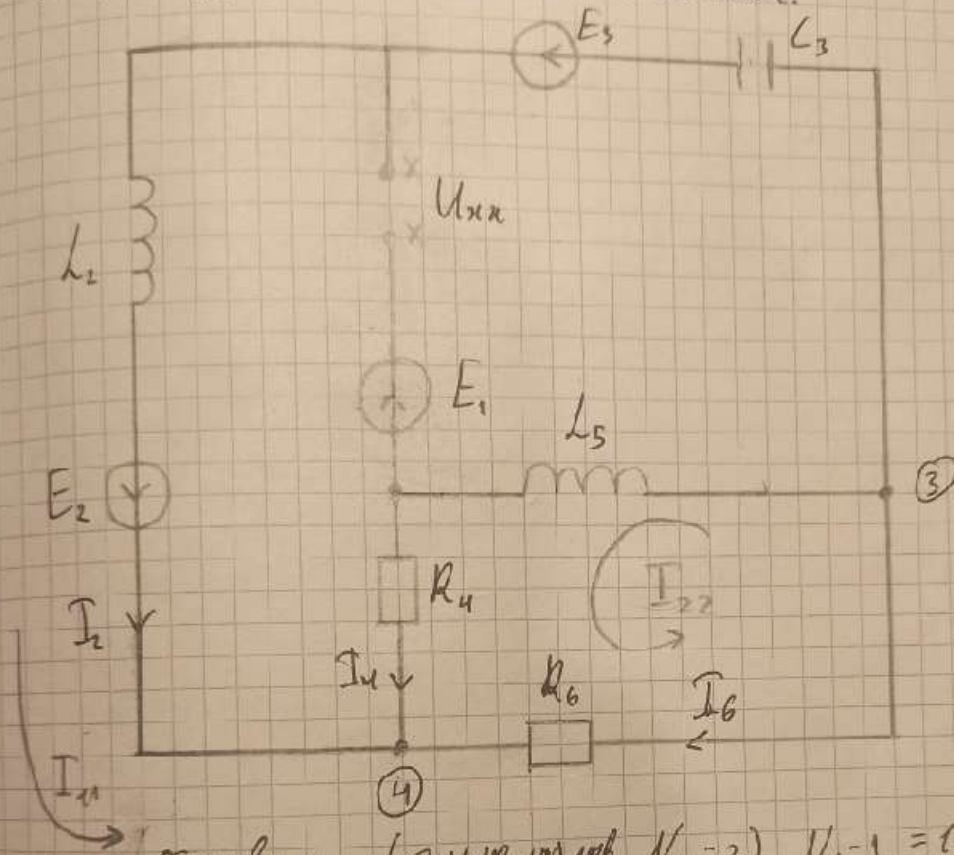 E₃
C₃
Uхх
L₂
E₁
L₅
E₂
③
R₄
I₂₂
I₂
I₄
R₆
I₆
④
I₁₁